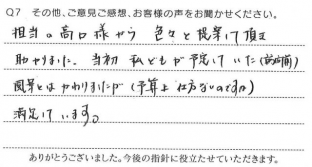 Q7 その他、ご意見ご感想、お客様の声をお聞かせください。
担当の高口様から 色々と提案して頂き
助かりました。当初 私どもが予定していた(前面)
風景とはかわりましたが(予算上仕方ないのですが)
満足しています。
ありがとうございました。今後の指針に役立たせていただきます。